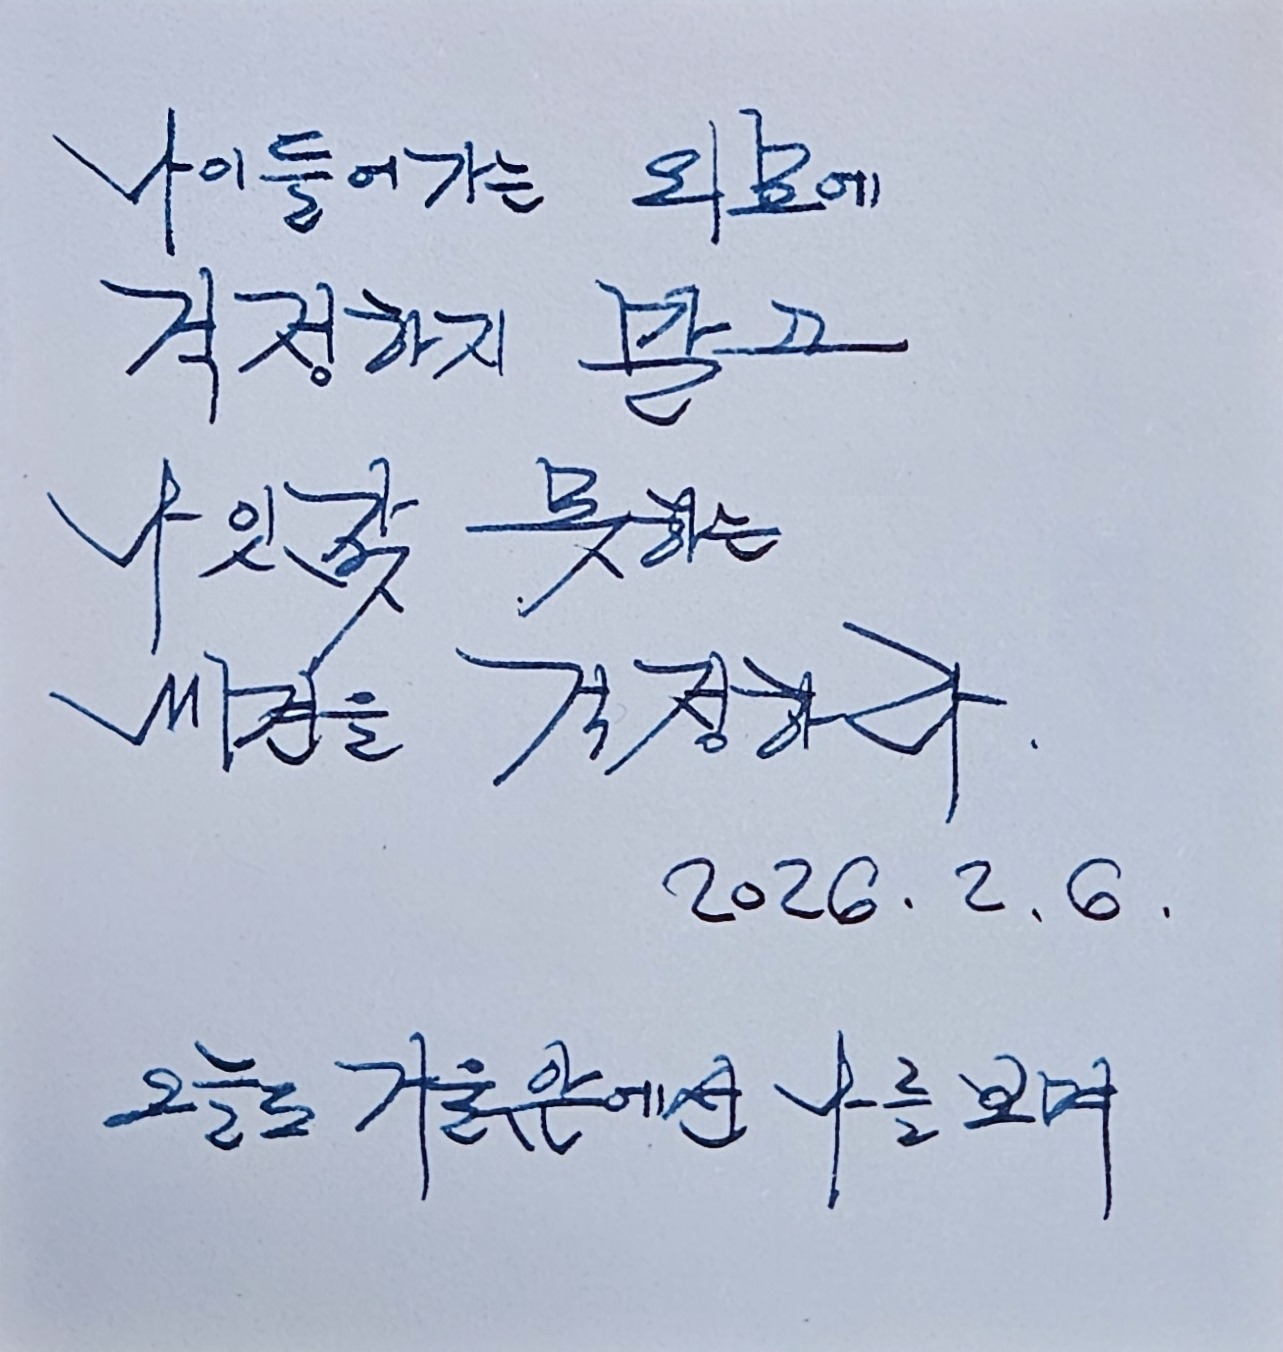 나이들어가는 외모에
걱정하지 말고
나잇값 못하는
내면을 걱정하라.
2026. 2. 6.
오늘도 거울앞에선 나를 보며